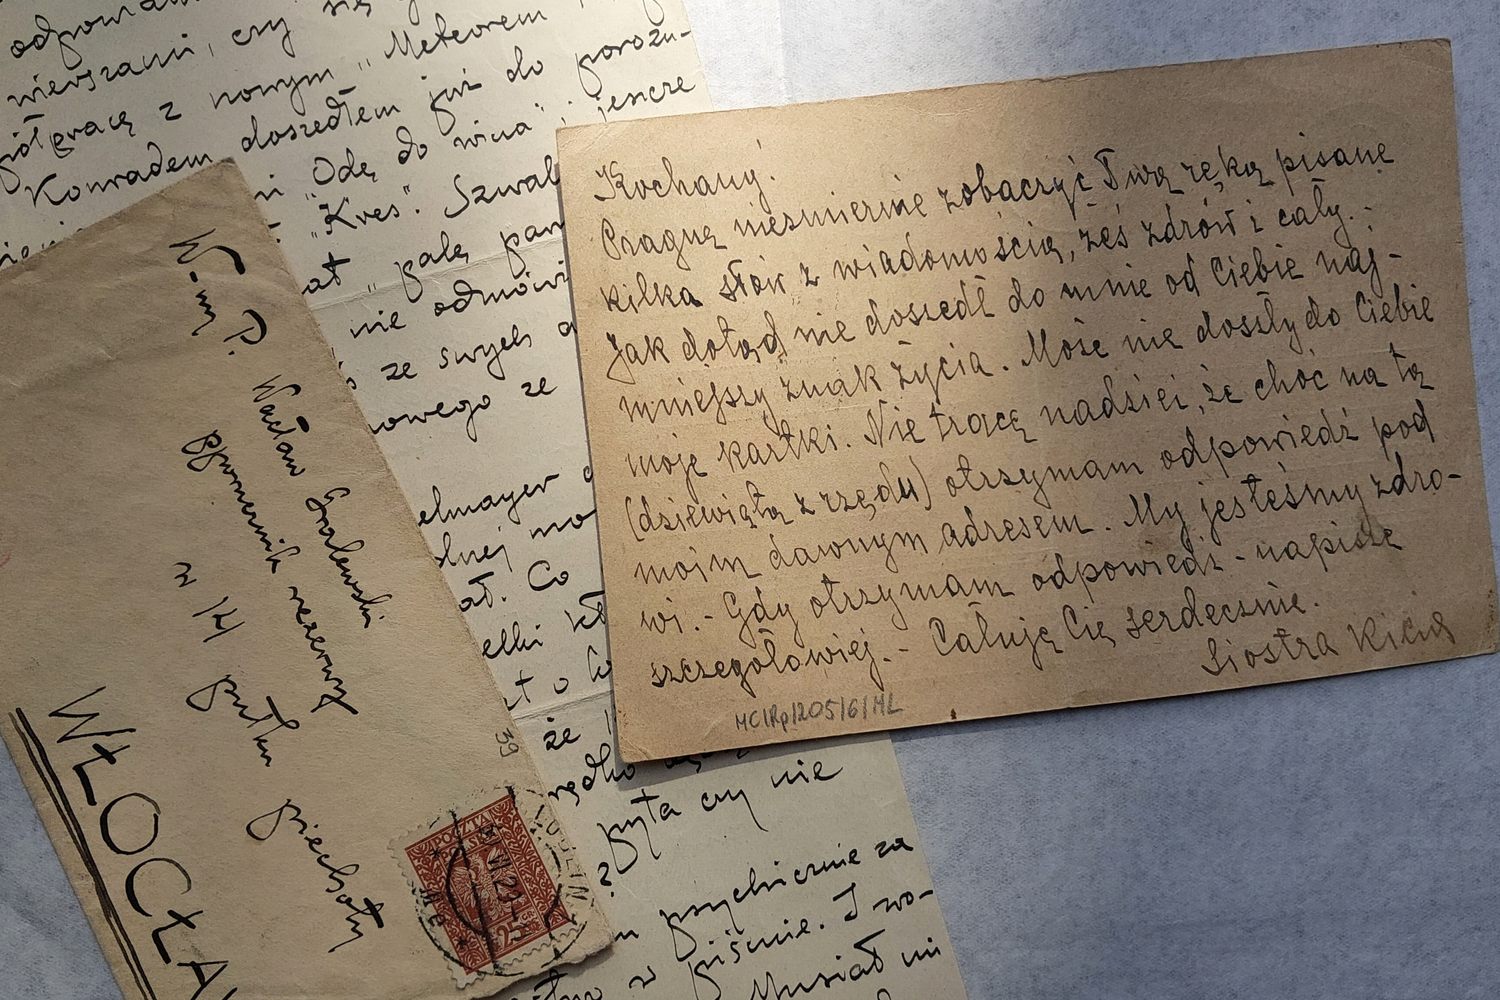 odpowia
wierszami, czy się
z nowym "Meteorem
Konradem doszedłem już do porozu-
"Odę do wina" i jeszcze
"Kres". Szwal
at "palę pam
nie odmówi
ze swych
nowego ze
elmayer
olnej mo
ał. Co
elki
że
pyta czy nie
?
psychicznie za
w piśmie. I wo-
Musiał mi
W-ny P.
Wacław Gralewski
pporucznik rezerwy
w 14 pułku piechoty
WŁOCŁA
39
POCZTA
LUBLIN
25 GR
Kochany!
Pragnę niezmiernie zobaczyć Twą ręką pisane
kilka słów z wiadomością, żeś zdrów i cały. -
Jak dotąd nie doszedł do mnie od Ciebie naj-
mniejszy znak życia. Może nie doszły do Ciebie
moje kartki. Nie tracę nadziei, że choć na tą
(dziewiątą z rzędu) otrzymam odpowiedź pod
moim dawnym adresem. My jesteśmy zdro-
wi. - Gdy otrzymam odpowiedź - napiszę
szczegółowiej. - Całuję Cię serdecznie.
Siostra Kicia
MC/Rp/205/6/ML